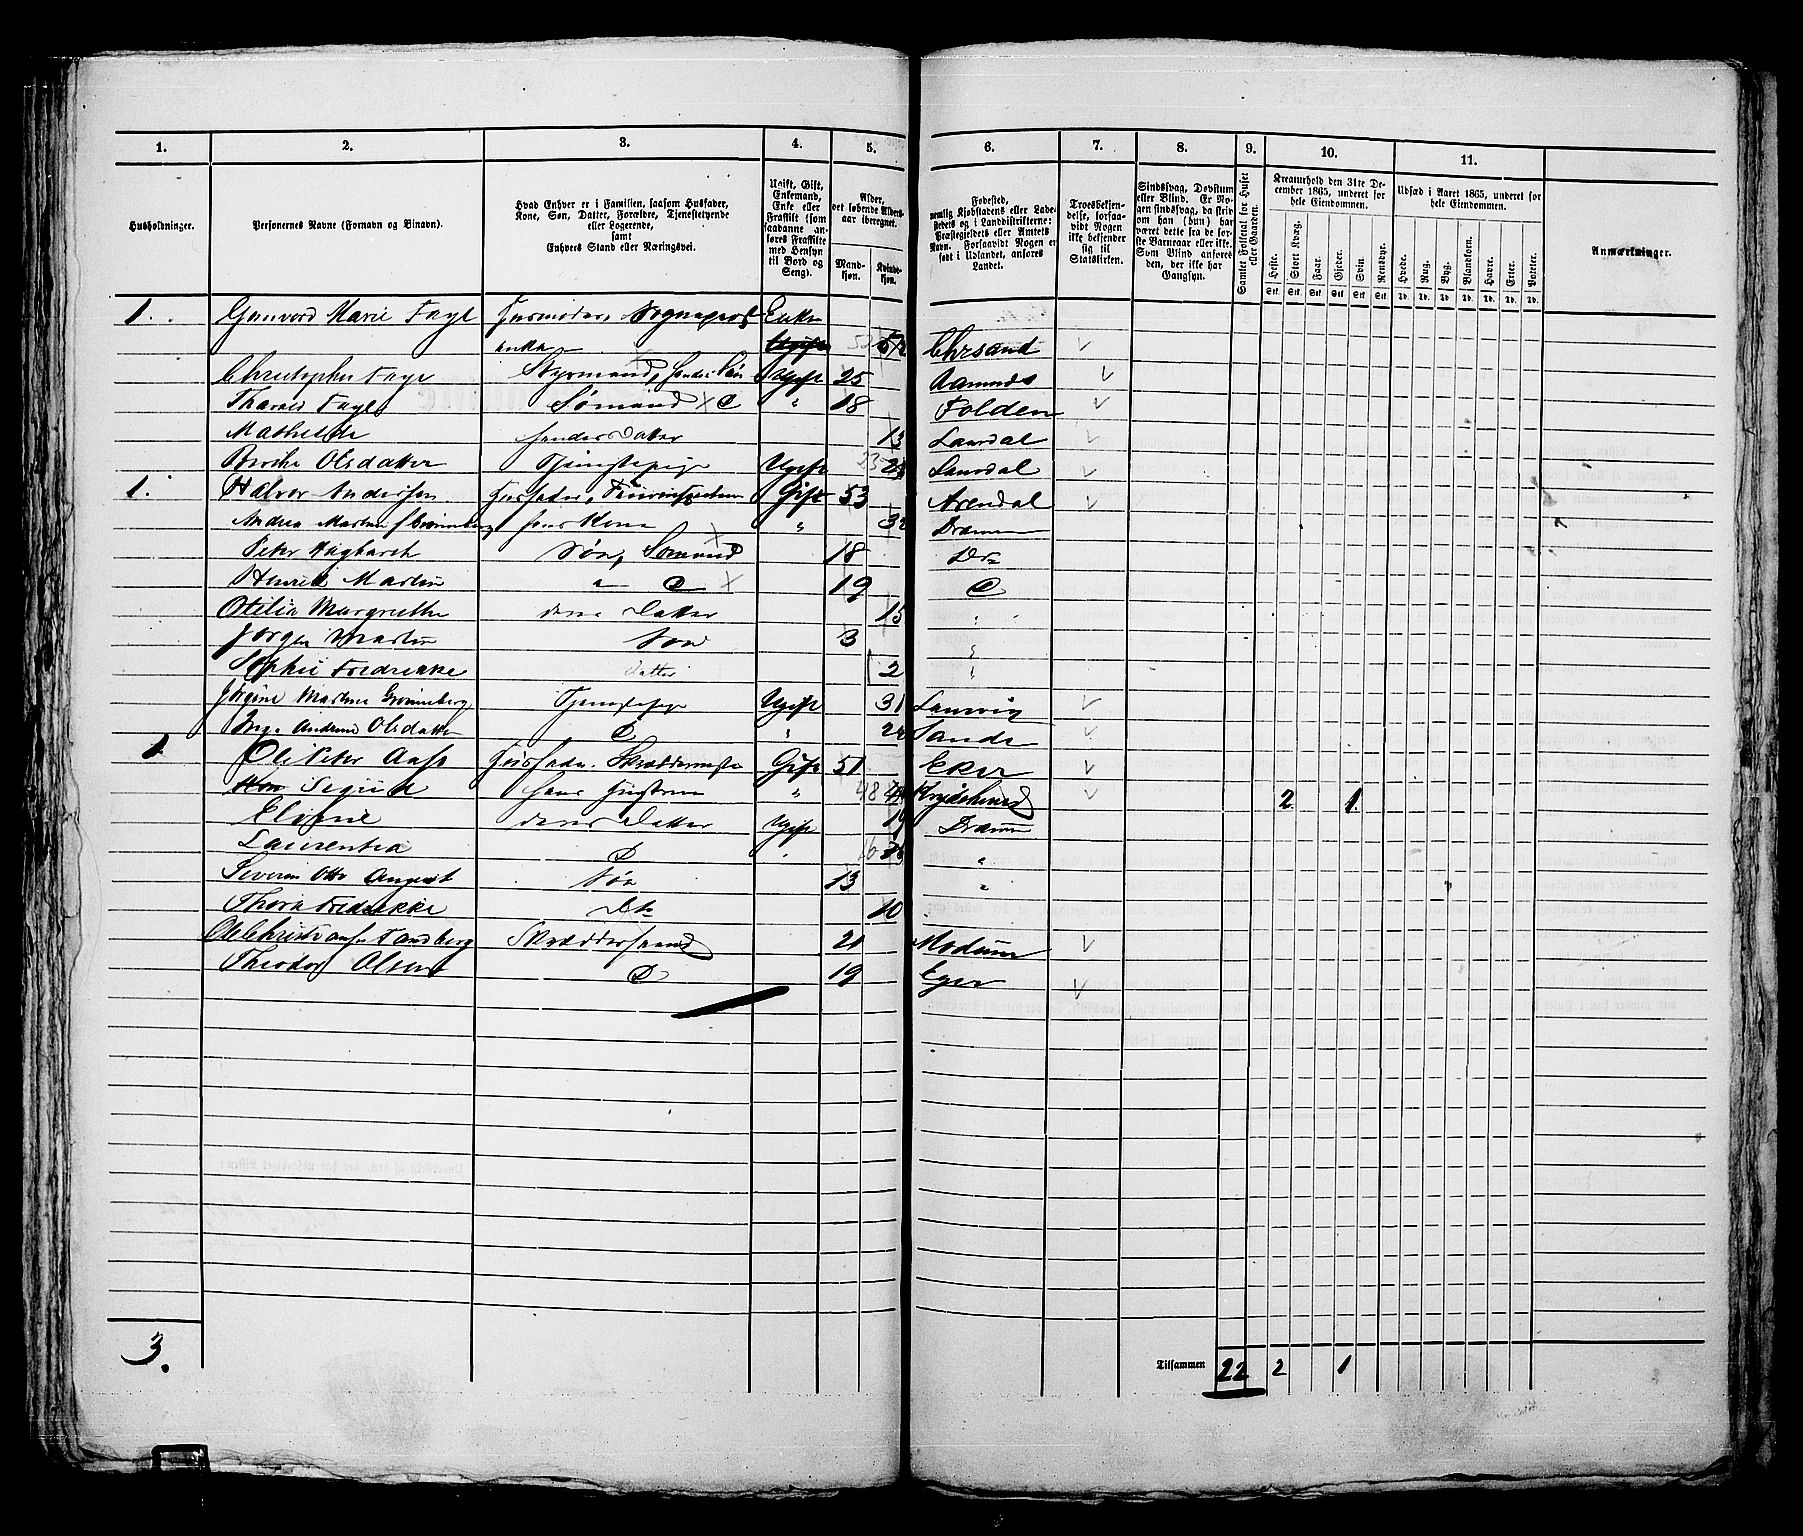 1. 2. 3. 4. 5. 6. 7. 8. 9. 10. 11.
Husholdninger.
Personernes Navne (Fornavn og Binavn).
Hvad Enhver er i Familien, saasom Husfader,
Kone, Søn, Datter, Forældre, Tjenestetyende
eller Logerende,
samt
Enhvers Stand eller Næringsvei.
Ugift, Gift,
Enkemand,
Enke eller
Fraskilt (som
saadanne an-
føres Fraskilte
med Hensyn
til Bord og
Seng).
Alder,
det løbende Alders-
aar iberegnet.
Mand-
kjøn.
Kvinde-
kjøn.
Fødested,
nemlig Kjøbstadens eller Lade-
stedets og i Landdistrikterne:
Præstegjeldets eller Amtets
Navn. Forsaavidt Nogen er
født i Udlandet, anføres
Landet.
Troesbekjen-
delse, forsaa-
vidt Nogen
ikke bekjender
sig til
Statskirken.
Sindssvag, Døvstum
eller Blind. Er No-
gen sindssvag, da skriv
om han (hun) har
været dette fra de før-
ste Barneaar eller ikke.
Som Blind anføres
den, der ikke har
Gangsyn.
Samlet Folketal for Huset
eller Gaarden.
Kreaturhold den 31te De-
cember 1865, underet for
hele Eiendommen.
Heste. Stort Kvæg. Faar. Gjeder. Svin. Rensdyr.
Stk. Stk. Stk. Stk. Stk. Stk.
Udsæd i Aaret 1865, underet for
hele Eiendommen.
Hvede. Rug. Byg. Blandkorn. Havre. Erter. Poteter.
Td. Td. Td. Td. Td. Td. Td.
Anmærkninger.
1. Gunvord Marie Faye Husmoder, Sogneprest Enke
enke 52 Chrsand
Christopher Faye Styrmand, hendes Søn Ugift 25
Tharald Faye Sømand × D " 18 Folden
Mathilde hendes Datter 13 Laurdal
Berthe Olsdatter Tjenestepige Ugift 25 Laurdal
1. Halvor Andersen Husfader, Gift 53 Arendal
Andrea Martine f Grönneberg hans Kone " 32 Dramm
Peter Søn, Sømand 18 Dr
Henrik Martin " D × 19 D
Otilia Margrethe deres Datter 15 "
Jørgen Martin Søn 3 "
Sophie Fredrikke Datter 2 "
Jørgine Martine Grönneberg Tjenestepige Ugift 31 Laurvig
Inga Andrine Olsdatter D " 22 Sande
1 Ole Peter Aase Husfader. Skræddermester Gift 51 Eker
Sigrid hans Hustrue " 48 2 1.
Elisine deres Datter Ugift 19 Dramm
Laurentia D 16 "
Severin Otto August Søn 13 "
Thora Fredrikke Dtr 10
Ole Christiansen Tandberg Skræddersvend 21 Modum
Theodor Olsen D 19 Eger
3.
Tilsammen 22 2 1